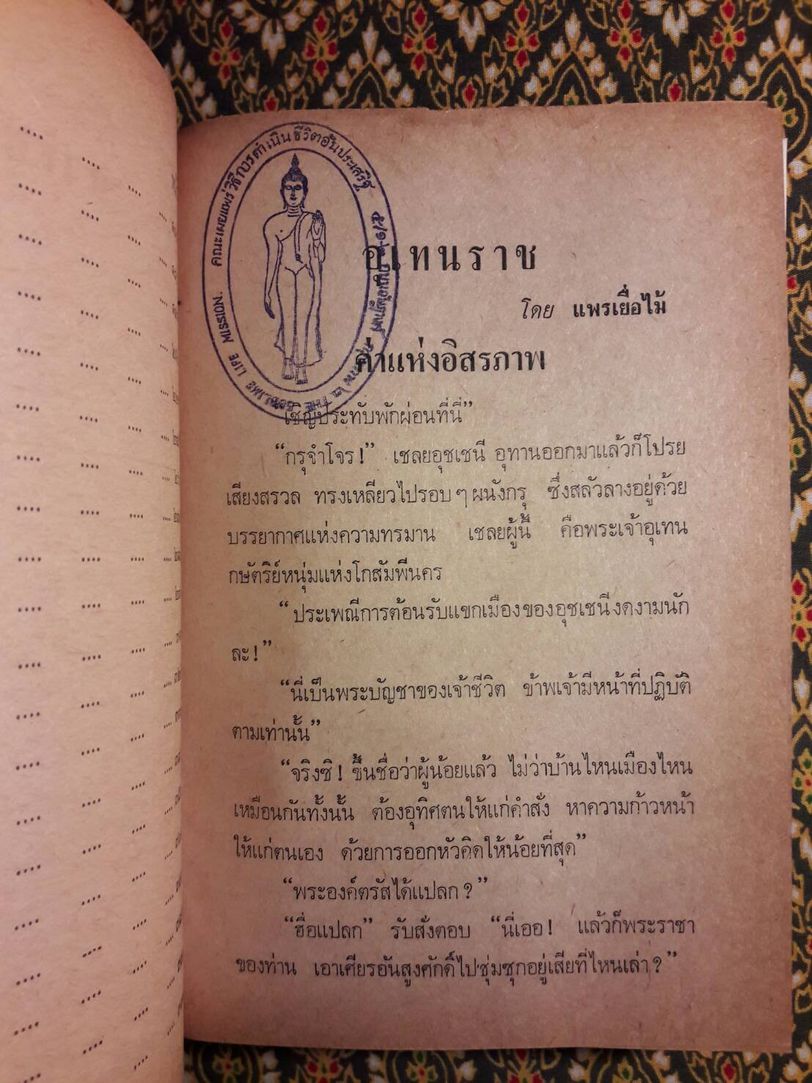 คณะเผยแพร่วิธีการดำเนินชีวิตอันประเสริฐ
LIFE MISSION.
อุเทนราช
โดย แพรเยื่อไม้
ค่าแห่งอิสรภาพ
“เชิญประทับพักผ่อนที่นี่”
“กรุจำโจร!” เชลยอุชเชนี อุทานออกมาแล้วก็โปรย
เสียงสรวล ทรงเหลียวไปรอบๆ ผนังกรุ ซึ่งสลัวลางอยู่ด้วย
บรรยากาศแห่งความทรมาน เชลยผู้นี้ คือพระเจ้าอุเทน
กษัตริย์หนุ่มแห่งโกสัมพีนคร
“ประเพณีการต้อนรับแขกเมืองของอุชเชนีงดงามนัก
ละ!”
“นี่เป็นพระบัญชาของเจ้าชีวิต ข้าพเจ้ามีหน้าที่ปฏิบัติ
ตามเท่านั้น”
“จริงซิ! ขึ้นชื่อว่าผู้น้อยแล้ว ไม่ว่าบ้านไหนเมืองไหน
เหมือนกันทั้งนั้น ต้องอุทิศตนให้แก่คำสั่ง หาความก้าวหน้า
ให้แก่ตนเอง ด้วยการออกหัวคิดให้น้อยที่สุด”
“พระองค์ตรัสได้แปลก?”
“ฮื่อแปลก” รับสั่งตอบ “นี่เออ! แล้วก็พระราชา
ของท่าน เอาเศียรอันสูงศักดิ์ไปซุ่มซุกอยู่เสียที่ไหนเล่า?”